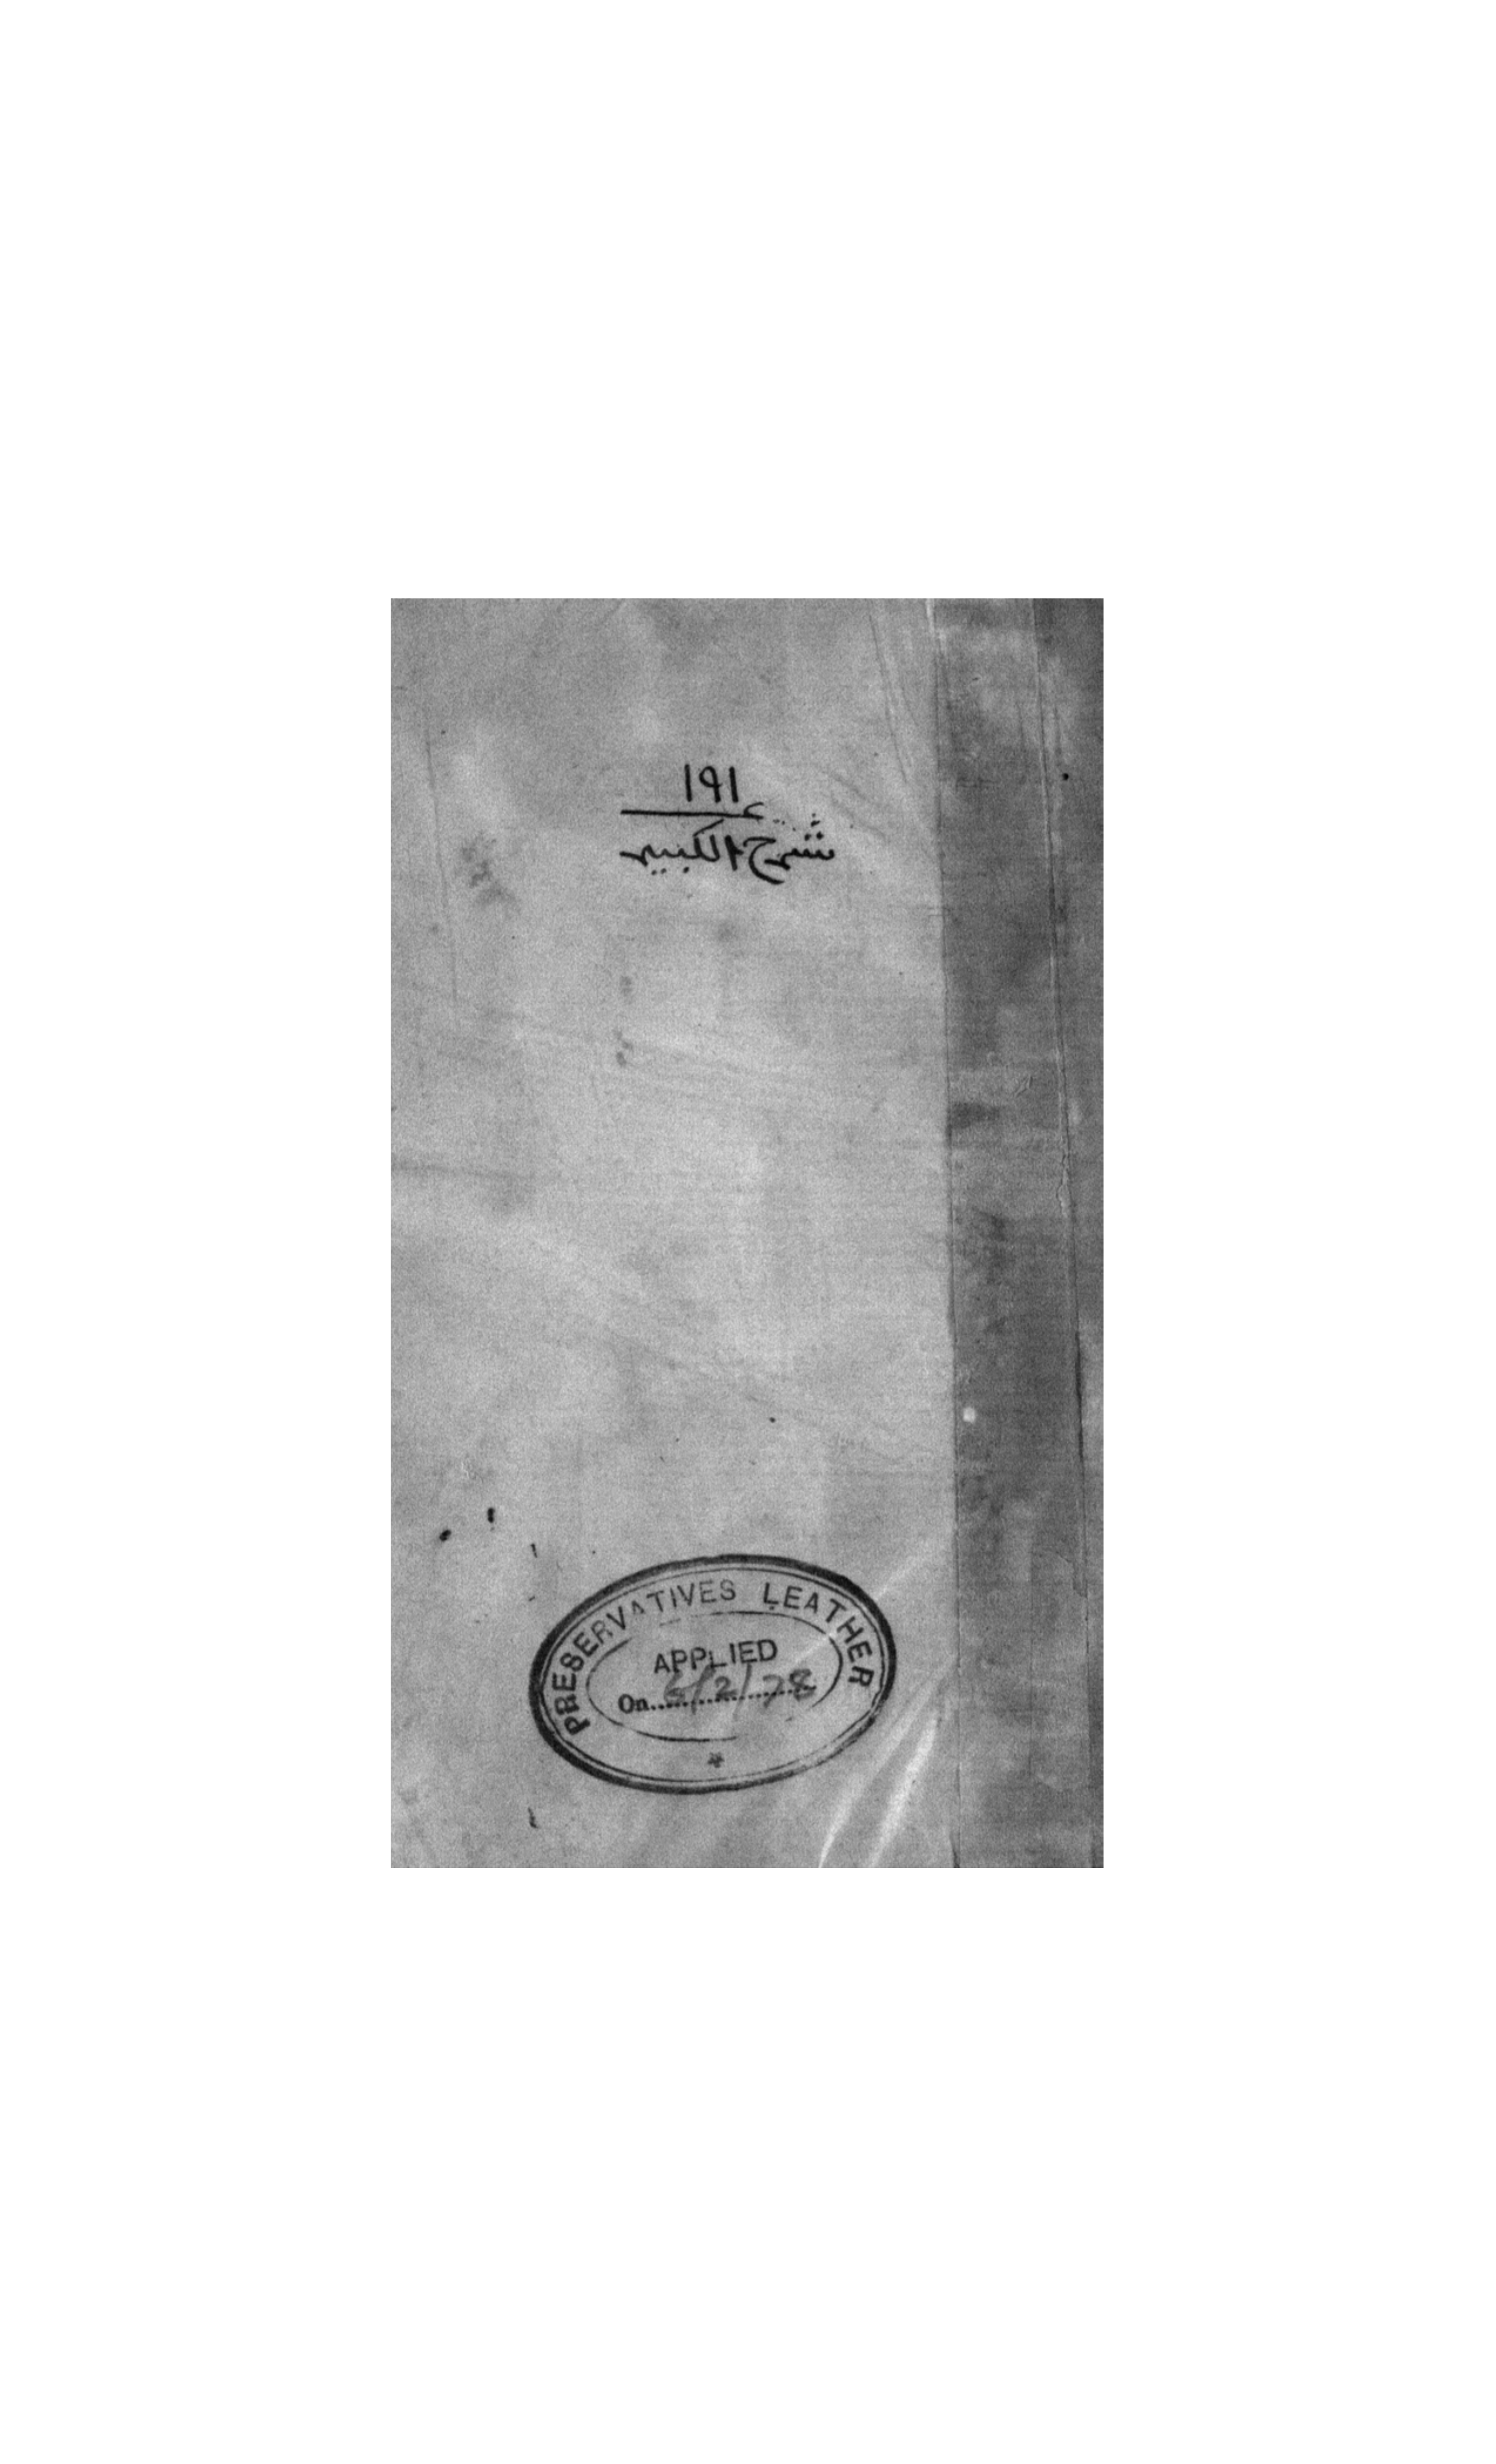 ١٩١
شرح الكبير
PRESERVATIVES LEATHER
APPLIED
On 6/2/78